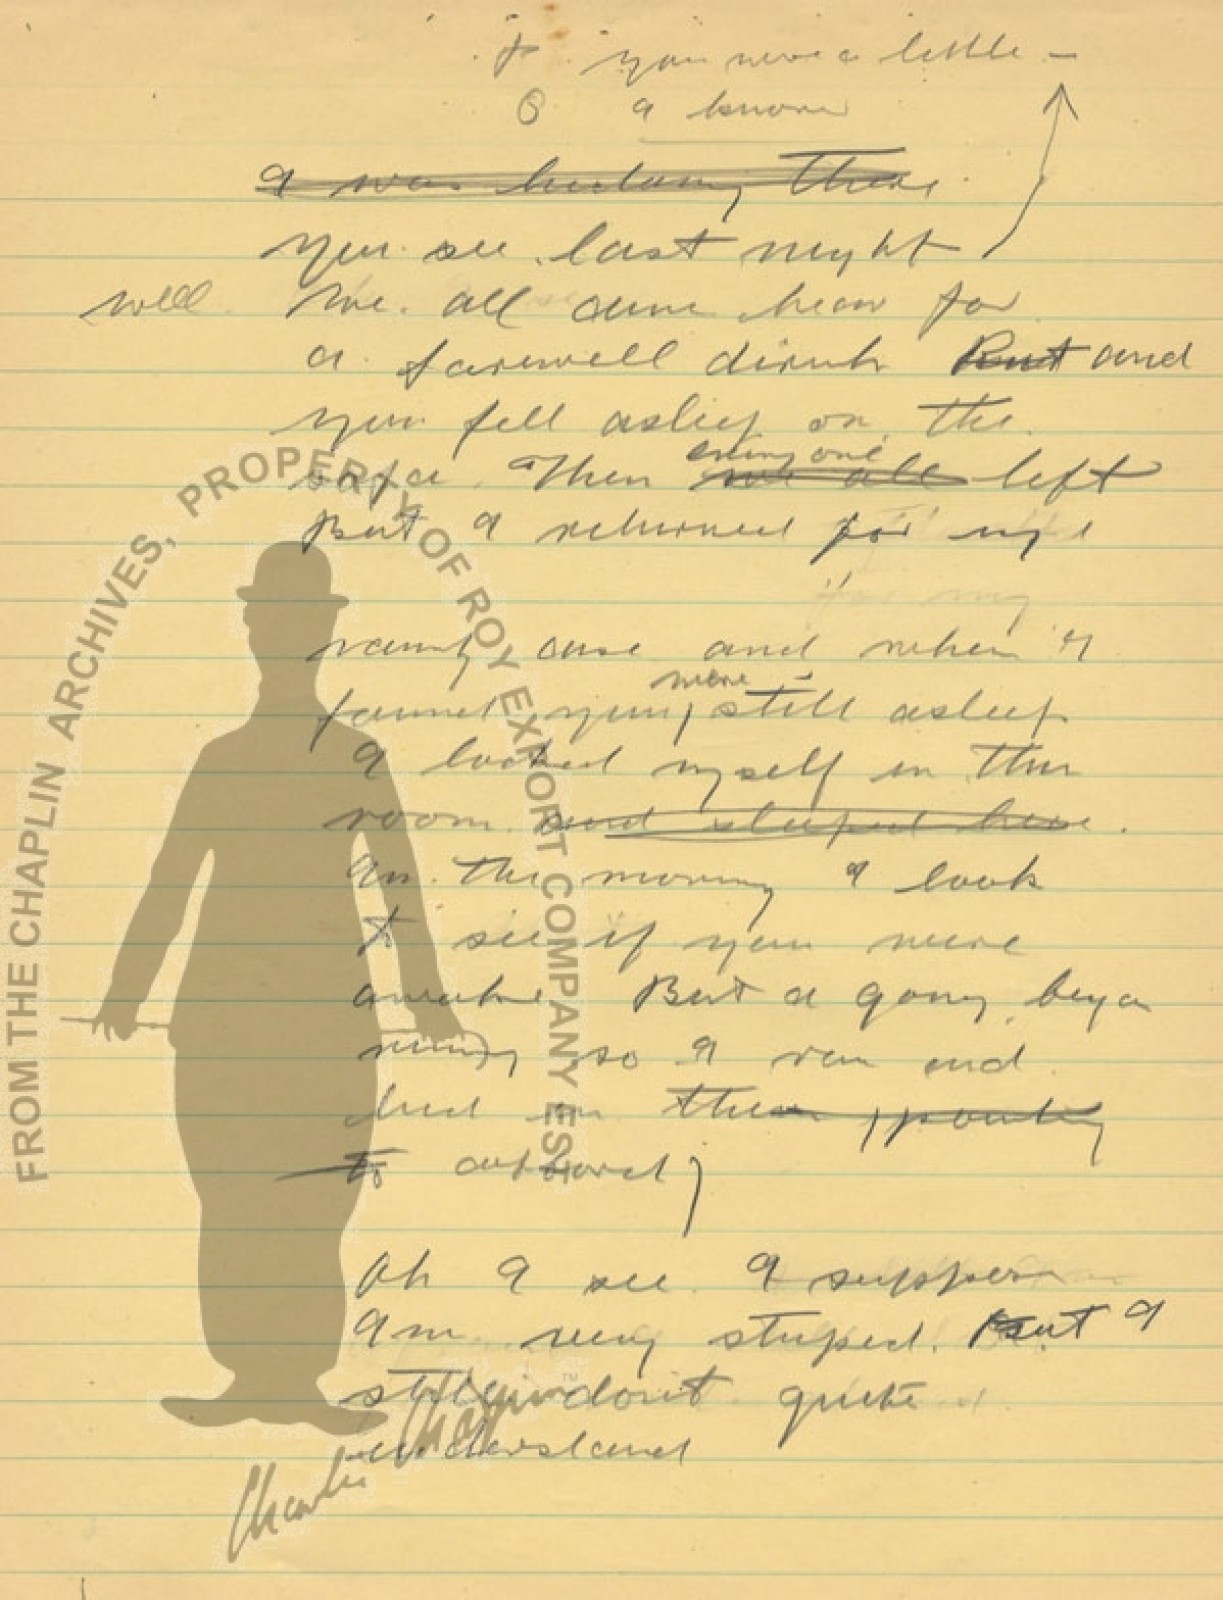 you were a little —
O I know
I was hidding there
you see last night
well We all came hear for
a farewell dirnk But and
you fell asleep on the
everyone
sofa. Then we all left
But I returned for my
for my
vanity case and when I
were
found you, still asleep
I locked myself in this
room and sleeped here.
In the morning I look
to see if you were
awake. But a gong began
so I ran and
hid in the
to cupboard
Oh I see. I suppose
I am very stuped. But I
still dont quite
understand
FROM THE CHAPLIN ARCHIVES, PROPERTY OF ROY EXPORT COMPANY EST
Charlie Chaplin™